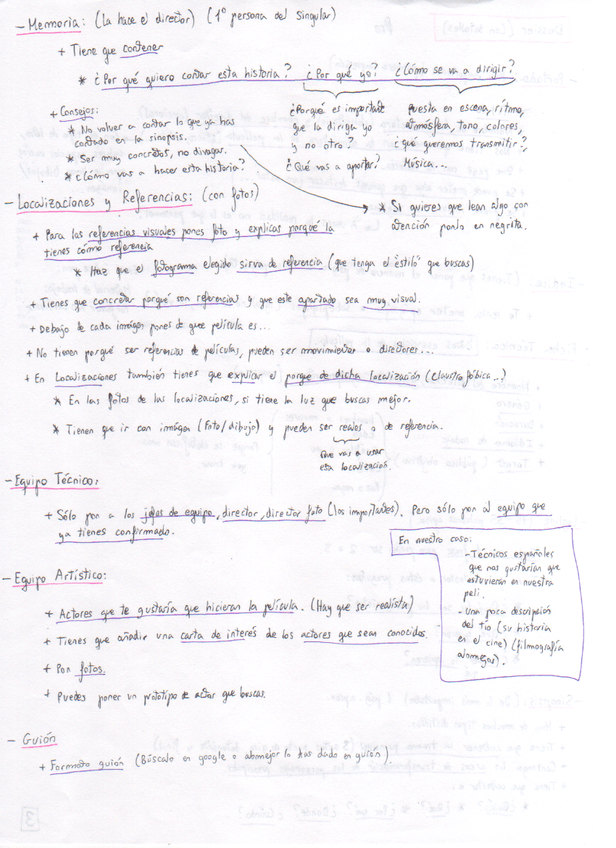 - Memoria: (La hace el director) (1º persona del singular)
+ Tiene que contener
* ¿Por qué quiero contar esta historia? ¿Por qué yo? ¿Cómo se va a dirigir?
¿Porqué es importante que la diriga yo y no otro?
¿Qué vas a aportar?
Puesta en escena, ritmo, atmósfera, tono, colores, ¿qué queremos transmitir?, Música...
+ Consejos:
* No volver a contar lo que ya has
contado en la sinopsis.
* Ser muy concretos, no divagar.
* ¿Cómo vas a hacer esta historia?
* Si quieres que lean algo con
atención ponlo en negrita.
- Localizaciones y Referencias: (con fotos)
+ Para las referencias visuales pones foto y explicas porqué la
tienes cómo referencia
* Haz que el fotograma elegido sirva de referencia (que tenga el estilo que buscas)
+ Tienes que concretar porqué son referencias y que este apartado sea muy visual.
+ Debajo de cada imágen pones de que película es...
+ No tienen porqué ser referencias de películas, pueden ser movimientos o directores...
+ En Localizaciones también tienes que explicar el porque de dicha localización (Claustrofóbica...?)
* En las fotos de las localizaciones, si tiene la luz que buscas mejor.
* Tienen que ir con imágen (Foto/dibujo) y pueden ser reales o de referencia.
Que vas a usar
esa localización.
- Equipo Técnico:
+ Sólo pon a los jefes de equipo, director, director foto (los importantes). Pero sólo pon al equipo que
ya tienes confirmado.
En nuestro caso:
- Técnicos españoles
que nos gustarían que
estuvieran en nuestra
peli.
- Una poca descripción
del tío (su historia
en el cine) (filmografía
alomejor).
- Equipo Artístico:
+ Actores que te gustaría que hicieran la película. (Hay que ser realista)
+ Tienes que añadir una carta de interés de los actores que sean conocidos.
+ Pon fotos.
+ Puedes poner un prototipo de actor que buscas.
- Guión
+ Formato guión (Búscalo en google o alomejor lo has dado en guión).